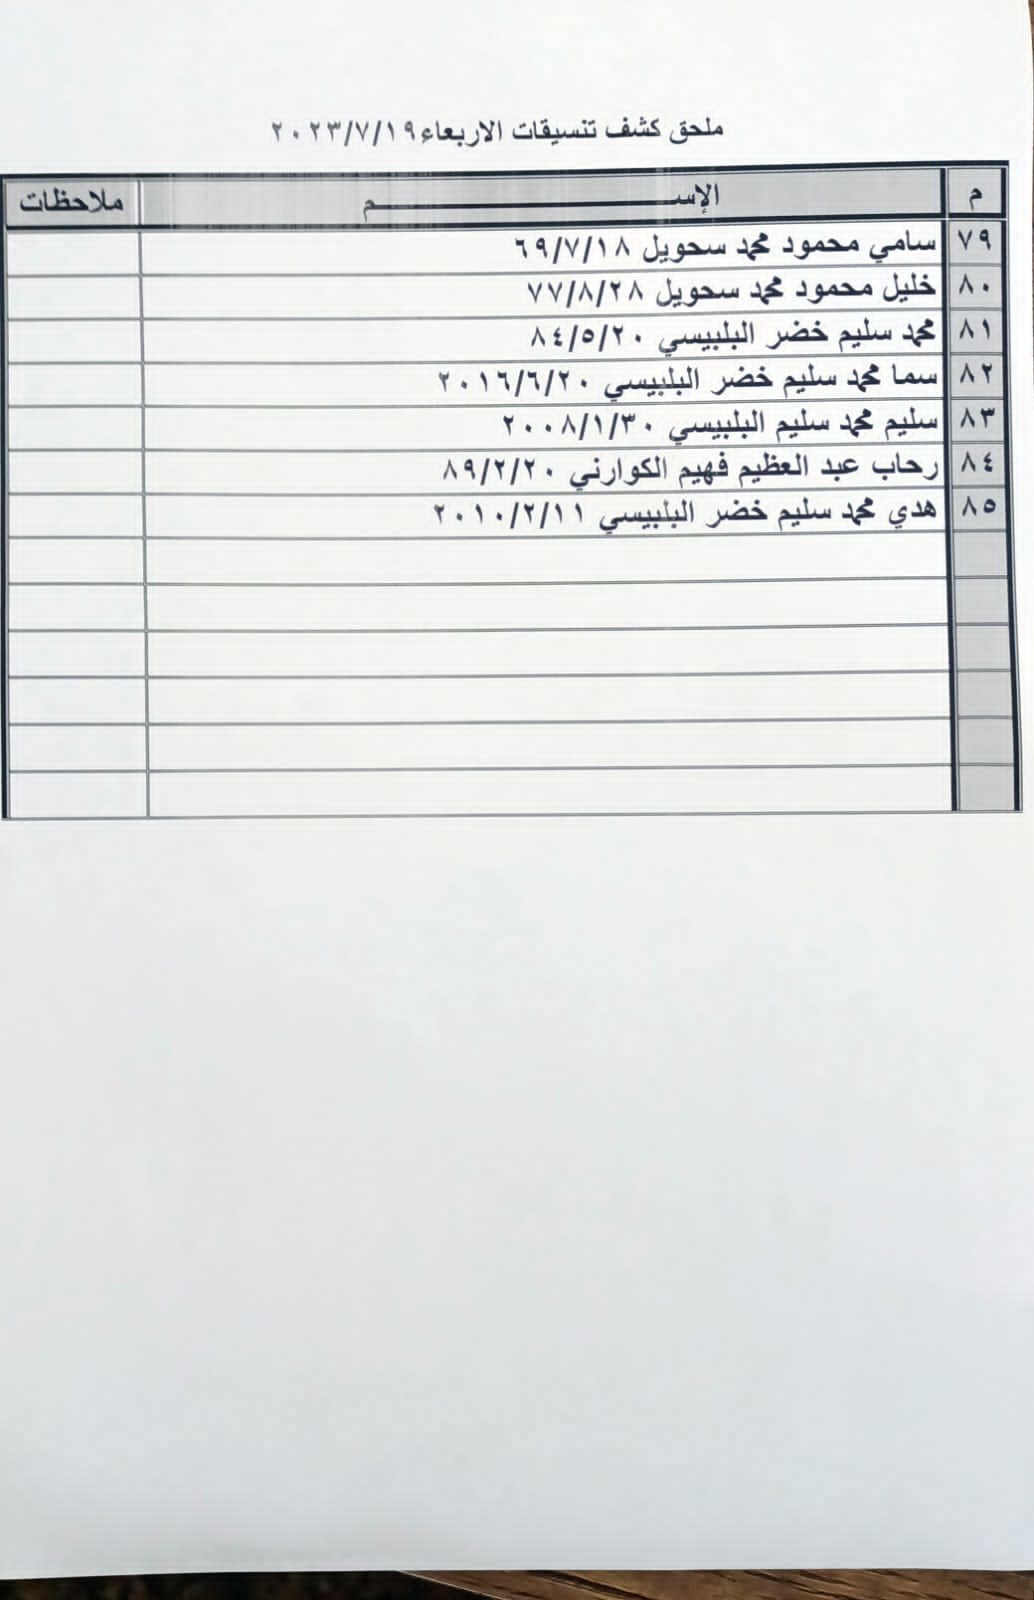 ملحق كشف تنسيقات الاربعاء ٢٠٢٣/٧/١٩
م الإســـــــــــــــــــــم ملاحظات
٧٩ سامي محمود محمد سحويل ٦٩/٧/١٨
٨٠ خليل محمود محمد سحويل ٧٧/٨/٢٨
٨١ محمد سليم خضر البلبيسي ٨٤/٥/٢٠
٨٢ سما محمد سليم خضر البلبيسي ٢٠١٦/٦/٢٠
٨٣ سليم محمد سليم البلبيسي ٢٠٠٨/١/٣٠
٨٤ رحاب عبد العظيم فهيم الكوارني ٨٩/٢/٢٠
٨٥ هدي محمد سليم خضر البلبيسي ٢٠١٠/٢/١١